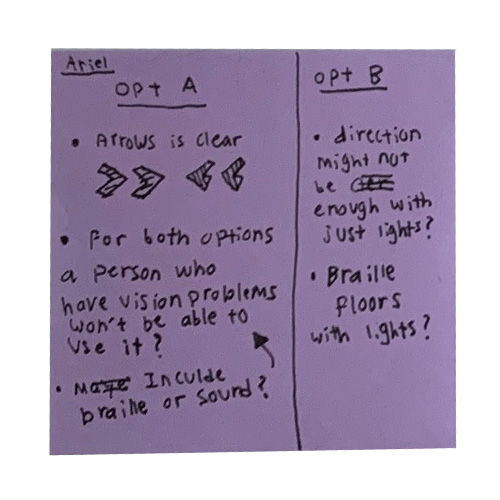 Ariel
Opt A
• Arrows is clear
• For both options
a person who
have vision problems
won't be able to
use it?
• Inculde
braille or sound?
Opt B
• direction
might not
be
enough with
just lights?
• Braille
floors
with lights?